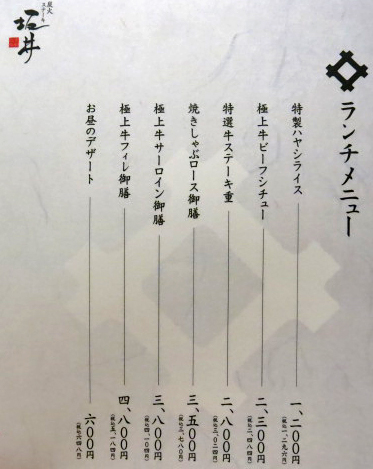 炭火
ステーキ
坂井
ランチメニュー
特製ハヤシライス 一、二〇〇円
(税込一、二九六円)
極上牛ビーフシチュー 二、三〇〇円
(税込二、四八四円)
特選牛ステーキ重 二、八〇〇円
(税込三、〇二四円)
焼きしゃぶロース御膳 三、五〇〇円
(税込三、七八〇円)
極上牛サーロイン御膳 三、八〇〇円
(税込四、一〇四円)
極上牛フィレ御膳 四、八〇〇円
(税込五、一八四円)
お昼のデザート 六〇〇円
(税込六四八円)